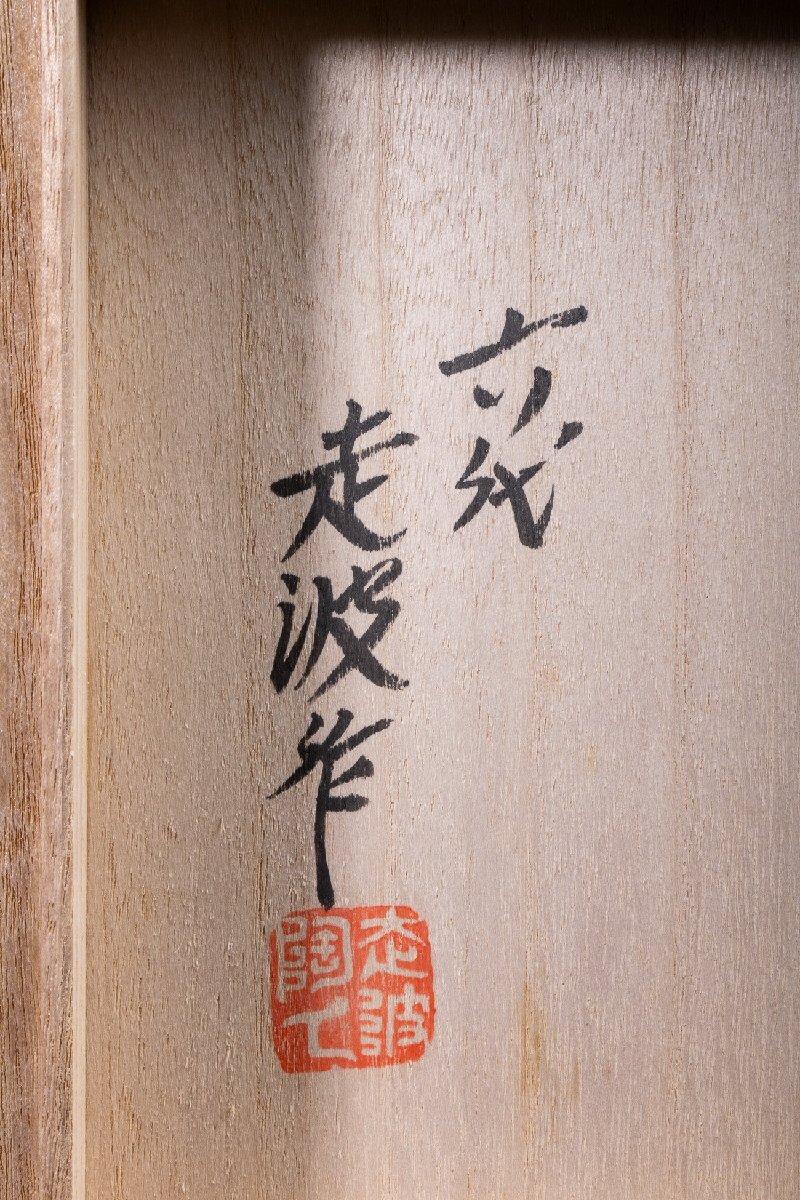 六代
走波作
走波
陶工